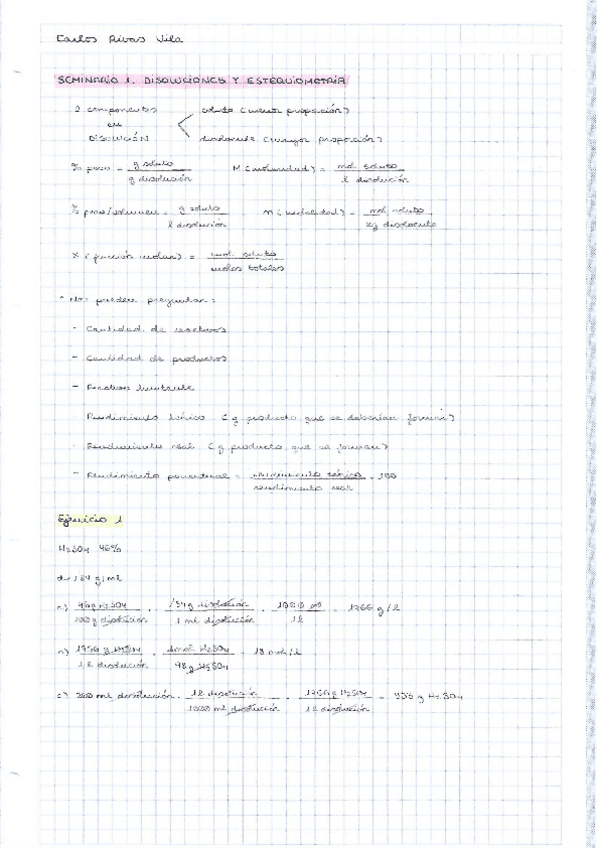 Carlos Rivas Vila
SEMINARIO 1. DISOLUCIONES Y ESTEQUIOMETRÍA
2 componentes
en
DISOLUCIÓN
soluto (menor proporción)
disolvente (mayor proporción)
% peso = g soluto / g disolución
M (molaridad) = mol soluto / l disolución
% peso/volumen = g soluto / l disolución
m (molalidad) = mol soluto / kg disolvente
x (fracción molar) = mol soluto / moles totales
* Nos pueden preguntar:
- Cantidad de reactivos
- Cantidad de productos
- Reactivo limitante
- Rendimiento teórico (g producto que se deberían formar)
- Rendimiento real (g producto que se forman)
- Rendimiento porcentual = rendimiento teórico / rendimiento real · 100
Ejercicio 1
H2SO4
d = 1'84 g/ml
g H2SO4 / 100 g disolución · 1'84 g disolución / 1 ml disolución · 1000 ml / 1 l = 1766 g/l
g H2SO4 / 1 l disolución · 1 mol H2SO4 / 98 g H2SO4 = 18 mol/l
c) ml disolución · 1 l disolución / 1000 ml disolución · g H2SO4 / 1 l disolución = g H2SO4